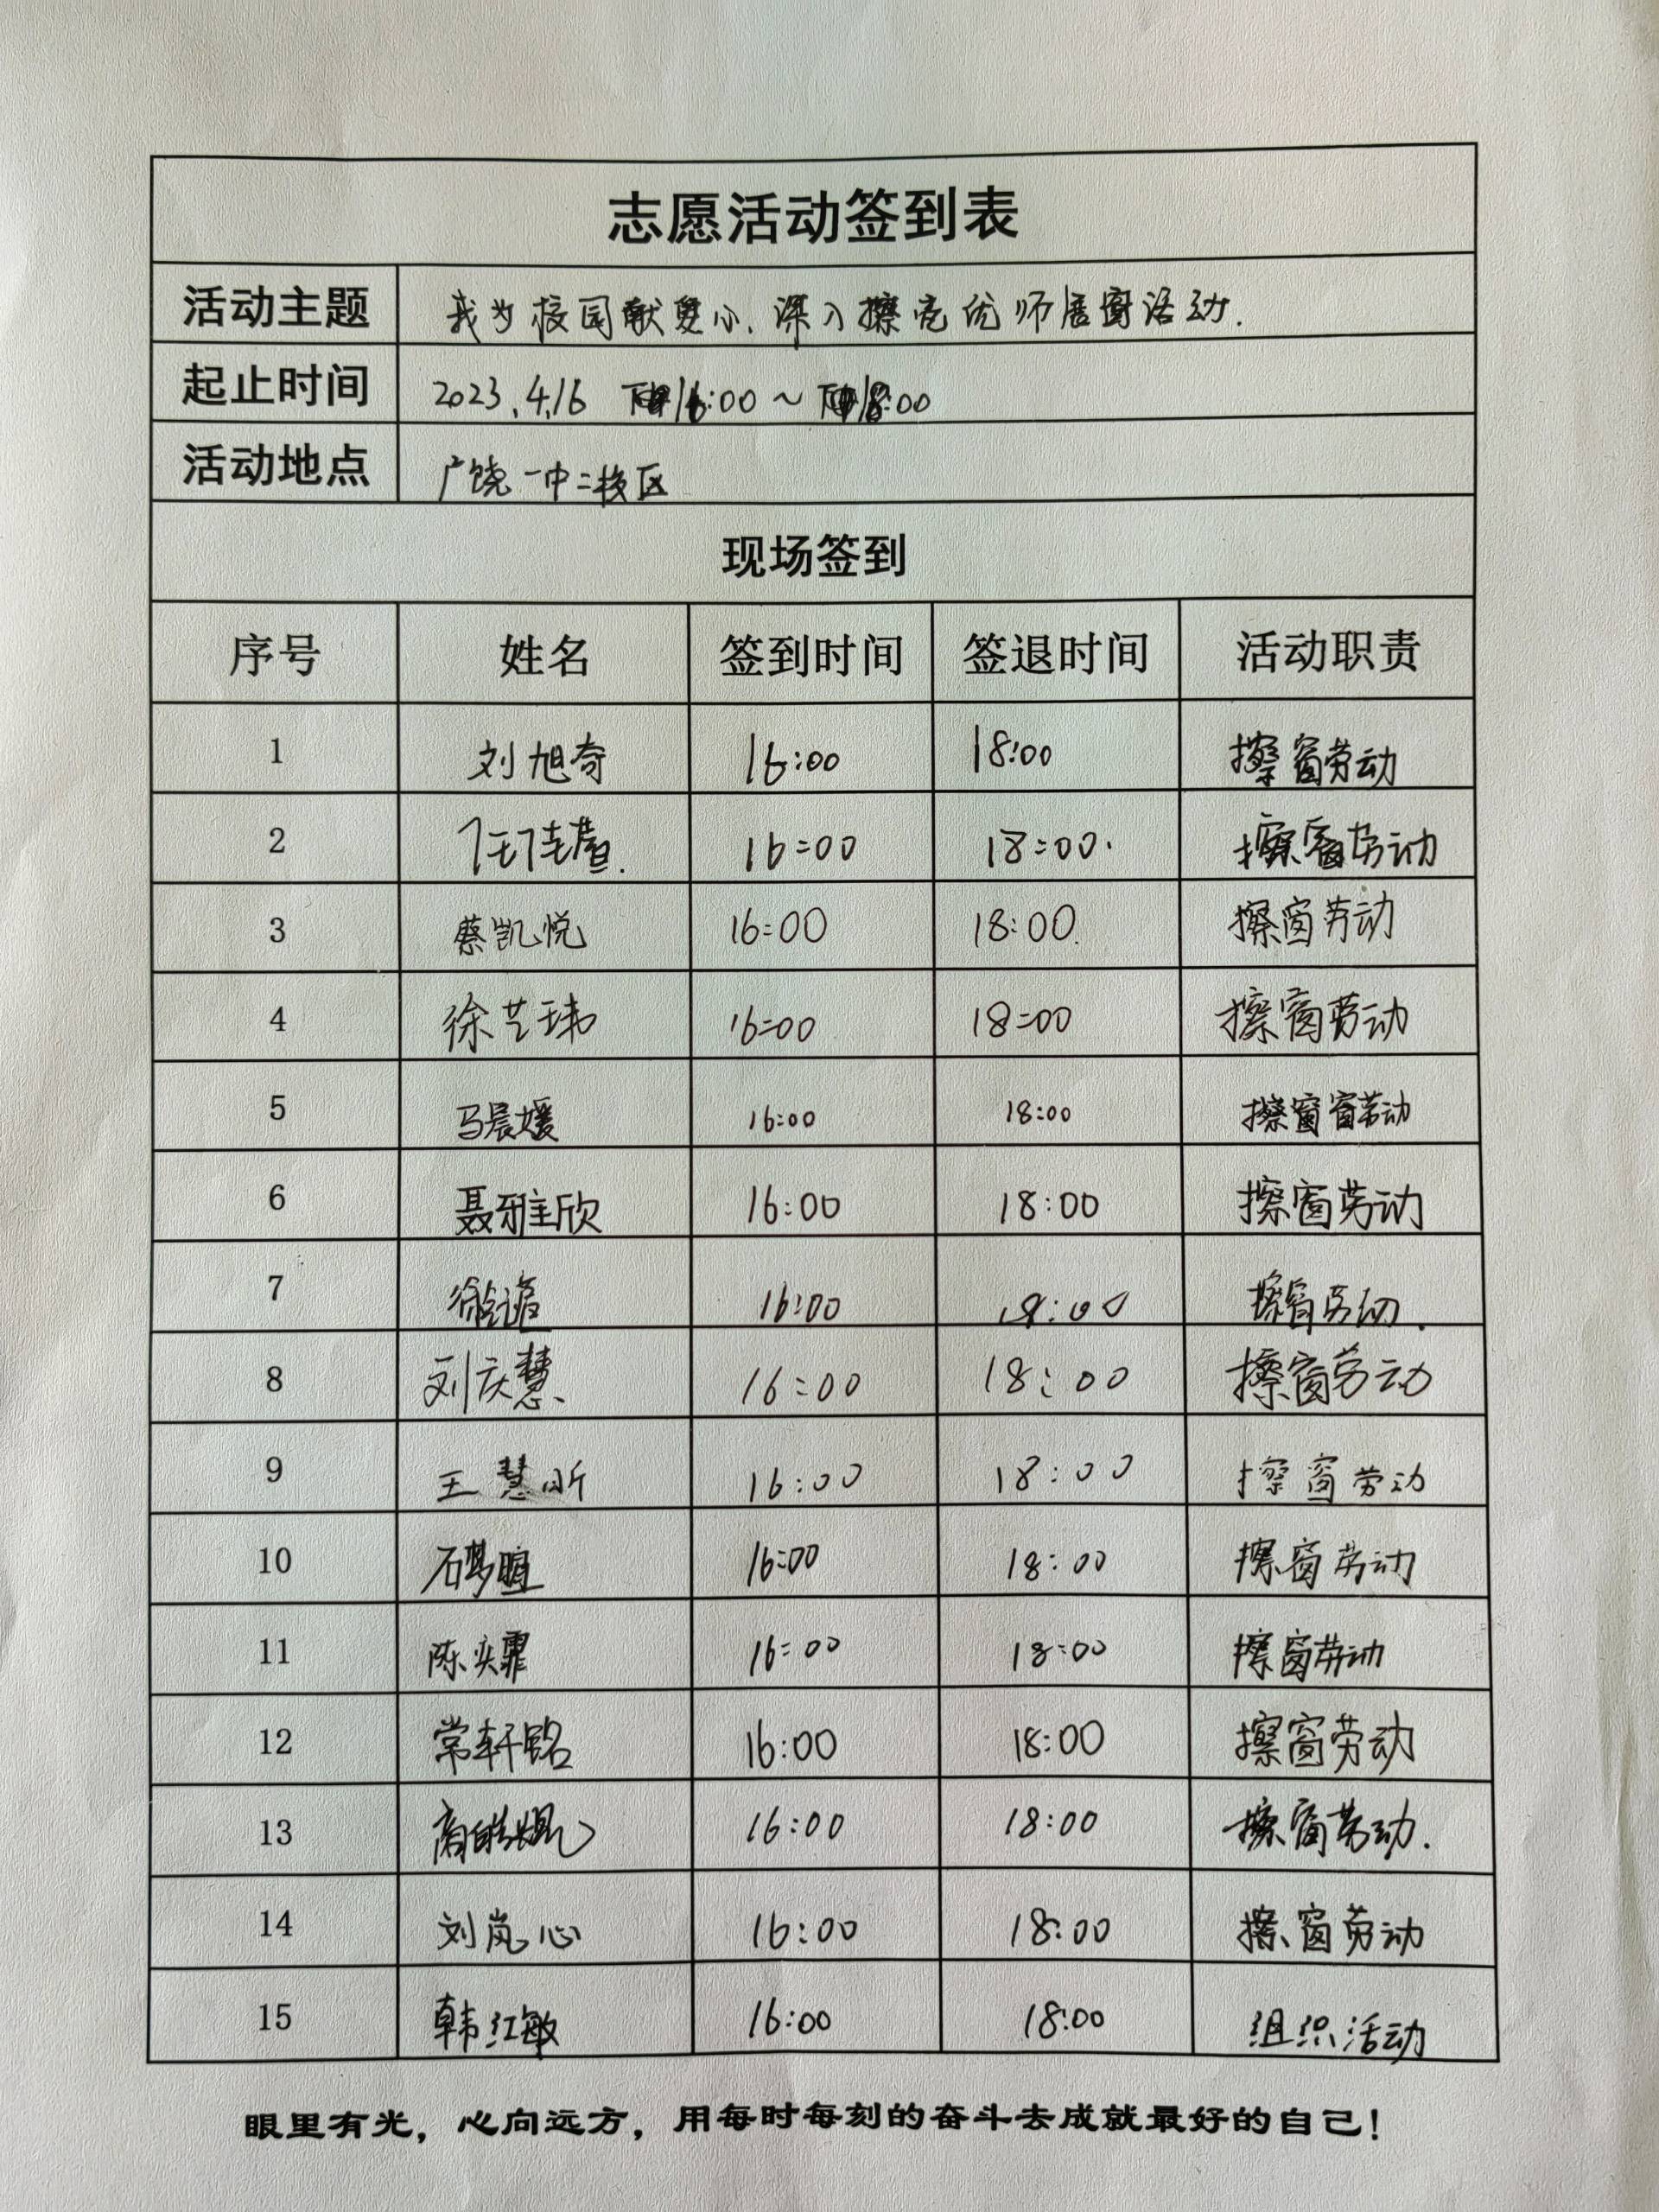 志愿活动签到表
活动主题 我为校园献爱心、深入擦亮优师居窗活动.
起止时间 2023.4.16 16:00~18:00
活动地点 广饶一中二校区
现场签到
序号 姓名 签到时间 签退时间 活动职责
1 刘旭奇 16:00 18:00 擦窗劳动
2 16:00 18:00. 擦窗劳动
3 蔡凯悦 16:00 18:00. 擦窗劳动
4 徐艺玮 16:00 18:00 擦窗劳动
5 马晨媛 16:00 18:00 擦窗劳动
6 聂雅欣 16:00 18:00 擦窗劳动
7 16:00 18:00 擦窗劳动.
8 刘庆慧 16:00 18:00 擦窗劳动
9 王慧昕 16:00 18:00 擦窗劳动
10 石梦暄 16:00 18:00 擦窗劳动
11 陈奕霏 16:00 18:00 擦窗劳动
12 常轩铭 16:00 18:00 擦窗劳动
13 16:00 18:00 擦窗劳动.
14 刘岚心 16:00 18:00 擦窗劳动
15 韩红敏 16:00 18:00 组织活动
眼里有光，心向远方，用每时每刻的奋斗去成就最好的自己！